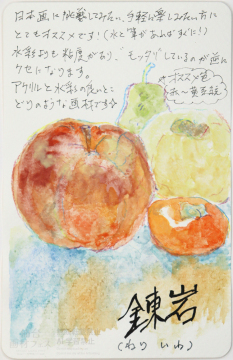 日本画に挑戦してみたい、手軽に楽しみたい方に
とてもオススメです!(水と筆があればすぐに!)
水彩よりも粘度があり、"モッタリ"しているのが逆に
クセになります。
アクリルと水彩の良いとこ
どりのような画材です☆
オススメ色
赤〜黄系統
錬岩
(ねり いわ)